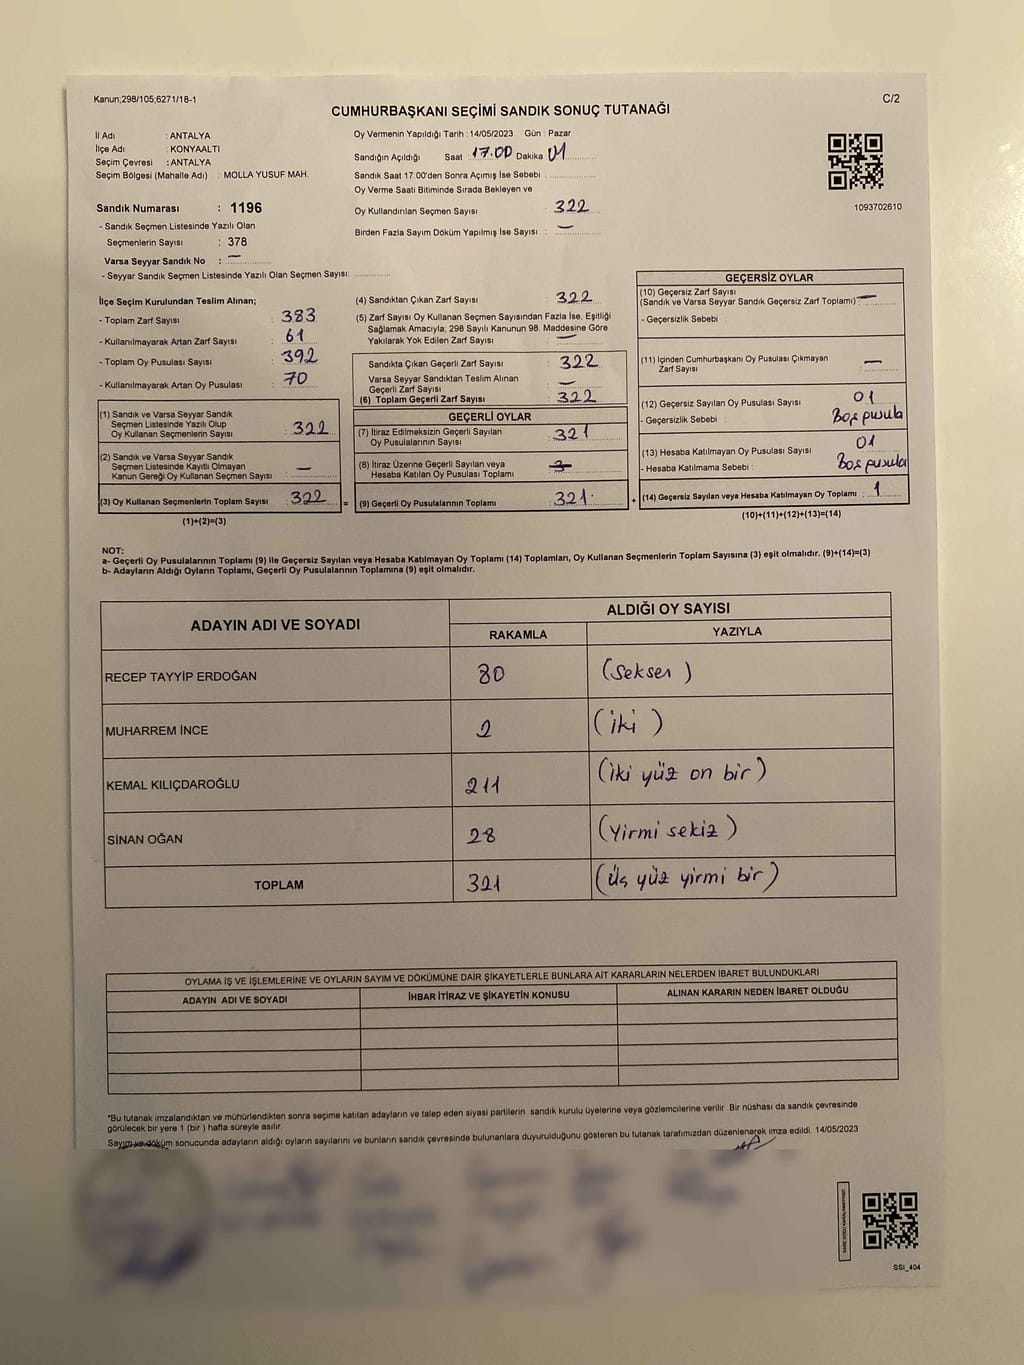 Kanun;298/105;6271/18-1
C/2
CUMHURBAŞKANI SEÇİMİ SANDIK SONUÇ TUTANAĞI
İl Adı : ANTALYA
İlçe Adı : KONYAALTI
Seçim Çevresi : ANTALYA
Seçim Bölgesi (Mahalle Adı) : MOLLA YUSUF MAH.
Sandık Numarası : 1196
- Sandık Seçmen Listesinde Yazılı Olan
Seçmenlerin Sayısı : 378
Varsa Seyyar Sandık No : —
- Seyyar Sandık Seçmen Listesinde Yazılı Olan Seçmen Sayısı:
Oy Vermenin Yapıldığı Tarih : 14/05/2023 Gün : Pazar
Sandığın Açıldığı Saat 17.00 Dakika 01
Sandık Saat 17:00'den Sonra Açımış İse Sebebi :
Oy Verme Saati Bitiminde Sırada Bekleyen ve
Oy Kullandırılan Seçmen Sayısı : 322
Birden Fazla Sayım Döküm Yapılmış İse Sayısı : —
1093702610
İlçe Seçim Kurulundan Teslim Alınan;
- Toplam Zarf Sayısı : 383
- Kullanılmayarak Artan Zarf Sayısı : 61
- Toplam Oy Pusulası Sayısı : 392
- Kullanılmayarak Artan Oy Pusulası : 70
(1) Sandık ve Varsa Seyyar Sandık
Seçmen Listesinde Yazılı Olup
Oy Kullanan Seçmenlerin Sayısı : 322
(2) Sandık ve Varsa Seyyar Sandık
Seçmen Listesinde Kayıtlı Olmayan
Kanun Gereği Oy Kullanan Seçmen Sayısı : —
(3) Oy Kullanan Seçmenlerin Toplam Sayısı : 322 =
(1)+(2)=(3)
(4) Sandıktan Çıkan Zarf Sayısı : 322
(5) Zarf Sayısı Oy Kullanan Seçmen Sayısından Fazla İse, Eşitliği
Sağlamak Amacıyla; 298 Sayılı Kanunun 98. Maddesine Göre
Yakılarak Yok Edilen Zarf Sayısı : —
Sandıkta Çıkan Geçerli Zarf Sayısı : 322
Varsa Seyyar Sandıktan Teslim Alınan
Geçerli Zarf Sayısı : —
(6) Toplam Geçerli Zarf Sayısı : 322
GEÇERLİ OYLAR
(7) İtiraz Edilmeksizin Geçerli Sayılan
Oy Pusulalarının Sayısı : 321
(8) İtiraz Üzerine Geçerli Sayılan veya
Hesaba Katılan Oy Pusulası Toplamı : —
(9) Geçerli Oy Pusulalarının Toplamı : 321 +
GEÇERSİZ OYLAR
(10) Geçersiz Zarf Sayısı
(Sandık ve Varsa Seyyar Sandık Geçersiz Zarf Toplamı) : —
- Geçersizlik Sebebi :
(11) İçinden Cumhurbaşkanı Oy Pusulası Çıkmayan
Zarf Sayısı : —
(12) Geçersiz Sayılan Oy Pusulası Sayısı : 01
- Geçersizlik Sebebi : Boş pusula
(13) Hesaba Katılmayan Oy Pusulası Sayısı : 01
- Hesaba Katılmama Sebebi : Boş pusula
(14) Geçersiz Sayılan veya Hesaba Katılmayan Oy Toplamı : 1
(10)+(11)+(12)+(13)=(14)
NOT:
a- Geçerli Oy Pusulalarının Toplamı (9) ile Geçersiz Sayılan veya Hesaba Katılmayan Oy Toplamı (14) Toplamları, Oy Kullanan Seçmenlerin Toplam Sayısına (3) eşit olmalıdır. (9)+(14)=(3)
b- Adayların Aldığı Oyların Toplamı, Geçerli Oy Pusulalarının Toplamına (9) eşit olmalıdır.
ADAYIN ADI VE SOYADI
ALDIĞI OY SAYISI
RAKAMLA YAZIYLA
RECEP TAYYİP ERDOĞAN 80 (Seksen)
MUHARREM İNCE 2 (iki)
KEMAL KILIÇDAROĞLU 211 (iki yüz on bir)
SİNAN OĞAN 28 (Yirmi sekiz)
TOPLAM 321 (Üç yüz yirmi bir)
OYLAMA İŞ VE İŞLEMLERİNE VE OYLARIN SAYIM VE DÖKÜMÜNE DAİR ŞİKAYETLERLE BUNLARA AİT KARARLARIN NELERDEN İBARET BULUNDUKLARI
ADAYIN ADI VE SOYADI İHBAR İTİRAZ VE ŞİKAYETİN KONUSU ALINAN KARARIN NEDEN İBARET OLDUĞU
*Bu tutanak imzalandıktan ve mühürlendikten sonra seçime katılan adayların ve talep eden siyasi partilerin sandık kurulu üyelerine veya gözlemcilerine verilir. Bir nüshası da sandık çevresinde
görülecek bir yere 1 (bir) hafta süreyle asılır.
Sayım ve döküm sonucunda adayların aldığı oyların sayılarını ve bunların sandık çevresinde bulunanlara duyurulduğunu gösteren bu tutanak tarafımızdan düzenlenerek imza edildi. 14/05/2023
SSI_404